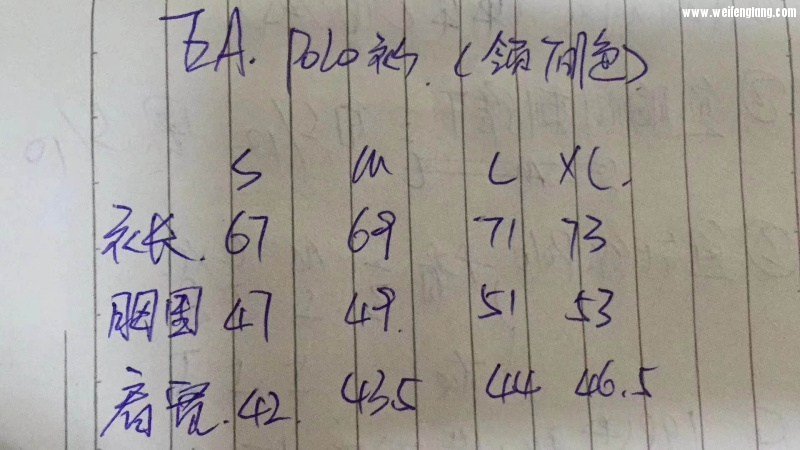 www.weifengtang.com
EA. POLO衫.(领间色)
S M L XL.
衣长. 67 69 71 73
胸围 47 49. 51 53
肩宽. 42. 43.5 44 46.5